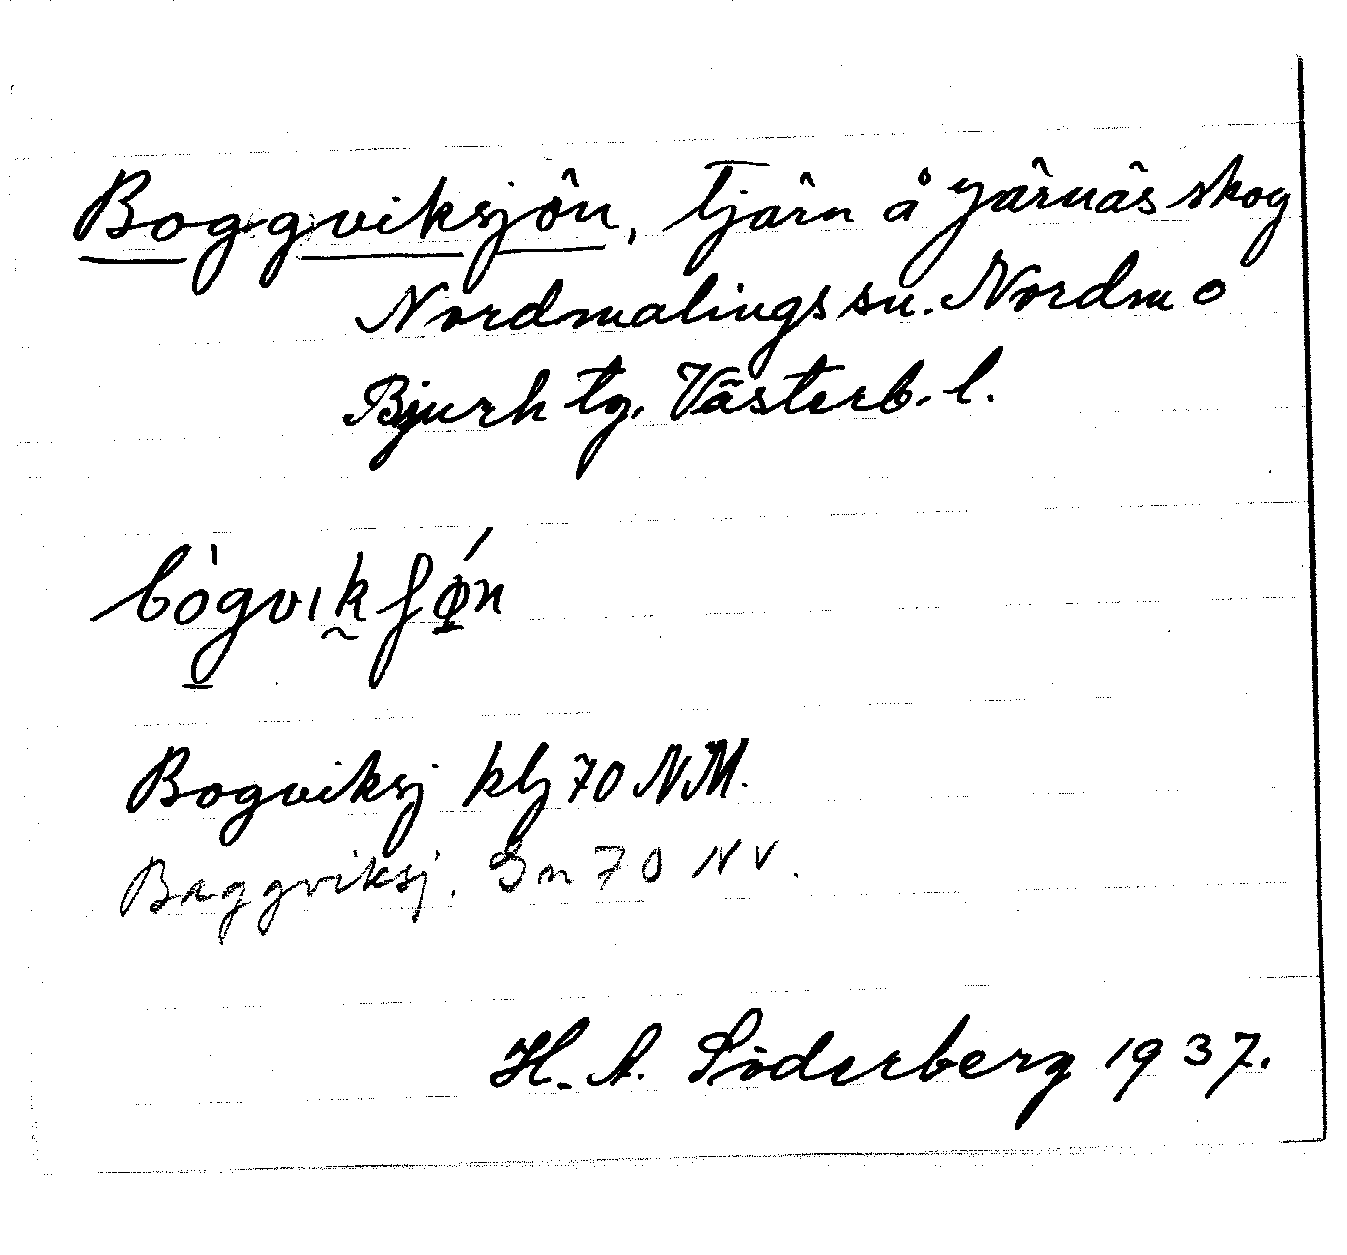 Boggviksjön, Tjärn å Järnäs skog
Nordmalings sn. Nordm o
Bjurh tg. Västerb. l.
Bogviksj kbl 70 NM.
Baggviksj. Gn 70 NV.
H. A. Söderberg 1937.